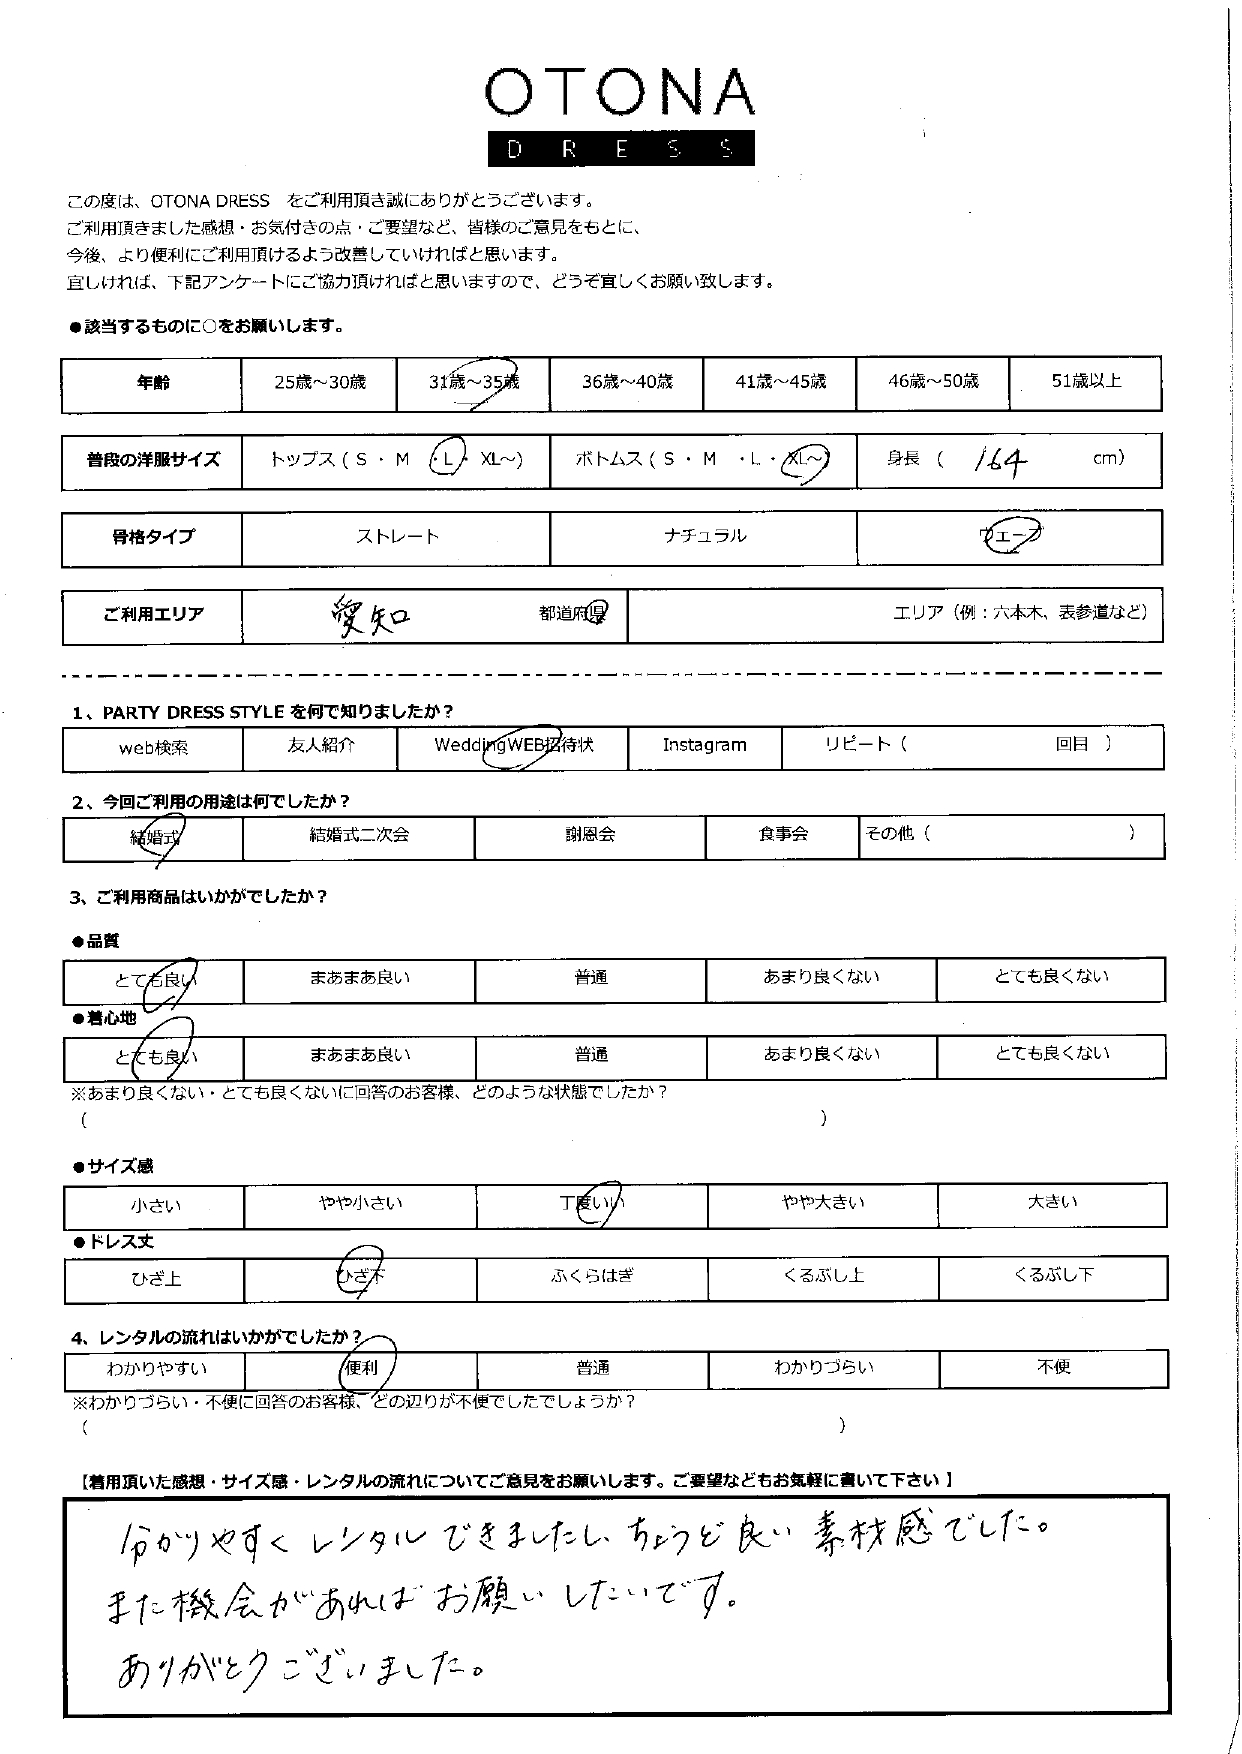 OTONA
DRESS
この度は、OTONA DRESS をご利用頂き誠にありがとうございます。
ご利用頂きました感想・お気付きの点・ご要望など、皆様のご意見をもとに、
今後、より便利にご利用頂けるよう改善していければと思います。
宜しければ、下記アンケートにご協力頂ければと思いますので、どうぞ宜しくお願い致します。
●該当するものに○をお願いします。
年齢 25歳～30歳 31歳～35歳 36歳～40歳 41歳～45歳 46歳～50歳 51歳以上
普段の洋服サイズ トップス（ S ・ M ・L・ XL～） ボトムス（ S ・ M ・L・XL～） 身長 （ 164 cm）
骨格タイプ ストレート ナチュラル ウェーブ
ご利用エリア 愛知 都道府県 エリア（例：六本木、表参道など）
1、PARTY DRESS STYLE を何で知りましたか？
web検索 友人紹介 WeddingWEB招待状 Instagram リピート（ 回目 ）
2、今回ご利用の用途は何でしたか？
結婚式 結婚式二次会 謝恩会 食事会 その他（ ）
3、ご利用商品はいかがでしたか？
●品質
とても良い まあまあ良い 普通 あまり良くない とても良くない
●着心地
とても良い まあまあ良い 普通 あまり良くない とても良くない
※あまり良くない・とても良くないに回答のお客様、どのような状態でしたか？
（ ）
●サイズ感
小さい やや小さい 丁度いい やや大きい 大きい
●ドレス丈
ひざ上 ひざ下 ふくらはぎ くるぶし上 くるぶし下
4、レンタルの流れはいかがでしたか？
わかりやすい 便利 普通 わかりづらい 不便
※わかりづらい・不便に回答のお客様、どの辺りが不便でしたでしょうか？
（ ）
【着用頂いた感想・サイズ感・レンタルの流れについてご意見をお願いします。ご要望などもお気軽に書いて下さい】
分かりやすくレンタルできましたし、ちょうど良い素材感でした。
また機会があればお願いしたいです。
ありがとうございました。